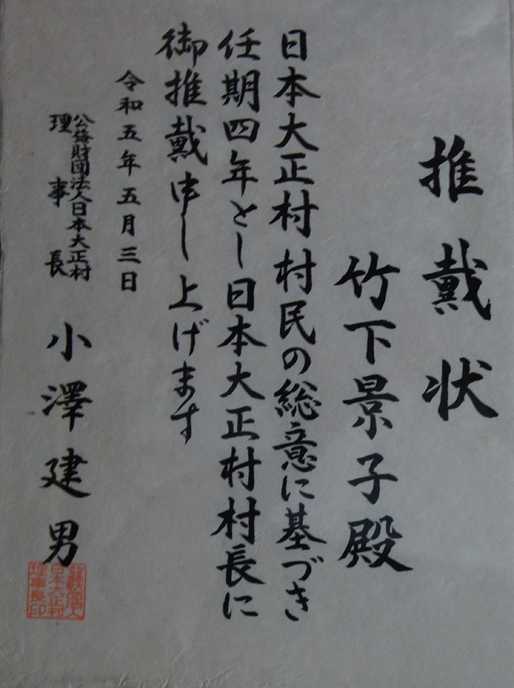 推戴状
竹下景子殿
日本大正村村民の総意に基づき
任期四年とし日本大正村村長に
御推戴申し上げます
令和五年五月三日
公益財団法人日本大正村
理事長
小澤建男